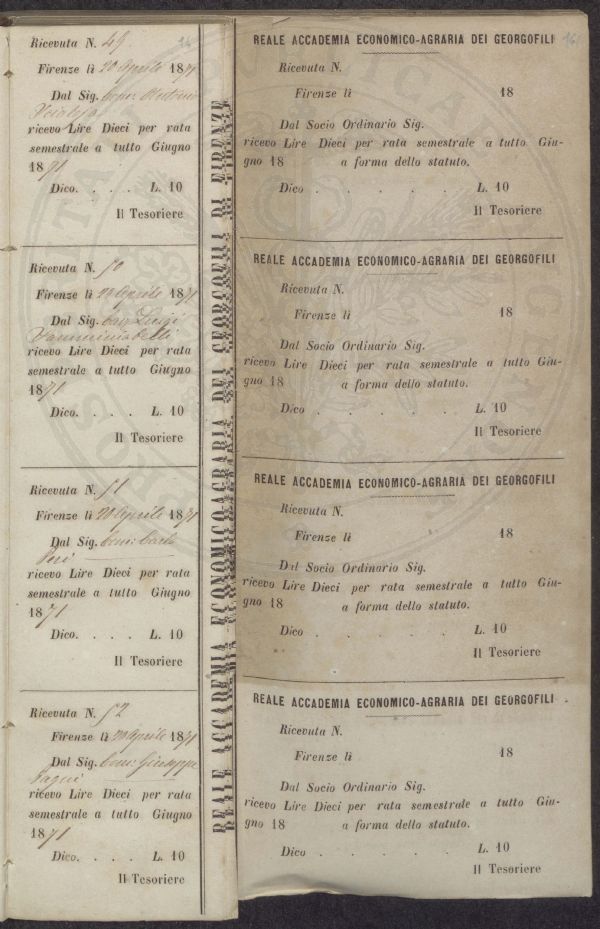 Ricevuta N. 49
Firenze lì 20 Aprile 1871
Dal Sig.
ricevo Lire Dieci per rata
semestrale a tutto Giugno
1871
Dico. . . . L. 10
Il Tesoriere
Ricevuta N. 50
Firenze lì 20 Aprile 1871
Dal Sig. Cav. Luigi
ricevo Lire Dieci per rata
semestrale a tutto Giugno
1871
Dico. . . . L. 10
Il Tesoriere
Ricevuta N. 51
Firenze lì 20 Aprile 1871
Dal Sig. Com: Carlo
Peri
ricevo Lire Dieci per rata
semestrale a tutto Giugno
1871
Dico. . . . L. 10
Il Tesoriere
Ricevuta N. 52
Firenze lì 20 Aprile 1871
Dal Sig. Com: Giuseppe
Pagni
ricevo Lire Dieci per rata
semestrale a tutto Giugno
1871
Dico. . . . L. 10
Il Tesoriere
REALE ACCADEMIA ECONOMICO-AGRARIA DEI GEORGOFILI DI FIRENZE
REALE ACCADEMIA ECONOMICO-AGRARIA DEI GEORGOFILI
Ricevuta N.
Firenze lì 18
Dal Socio Ordinario Sig.
ricevo Lire Dieci per rata semestrale a tutto Giu-
gno 18 a forma dello statuto.
Dico . . . . L. 10
Il Tesoriere
REALE ACCADEMIA ECONOMICO-AGRARIA DEI GEORGOFILI
Ricevuta N.
Firenze lì 18
Dal Socio Ordinario Sig.
ricevo Lire Dieci per rata semestrale a tutto Giu-
gno 18 a forma dello statuto.
Dico . . . . L. 10
Il Tesoriere
REALE ACCADEMIA ECONOMICO-AGRARIA DEI GEORGOFILI
Ricevuta N.
Firenze lì 18
Dal Socio Ordinario Sig.
ricevo Lire Dieci per rata semestrale a tutto Giu-
gno 18 a forma dello statuto.
Dico . . . . L. 10
Il Tesoriere
REALE ACCADEMIA ECONOMICO-AGRARIA DEI GEORGOFILI
Ricevuta N.
Firenze lì 18
Dal Socio Ordinario Sig.
ricevo Lire Dieci per rata semestrale a tutto Giu-
gno 18 a forma dello statuto.
Dico . . . . L. 10
Il Tesoriere